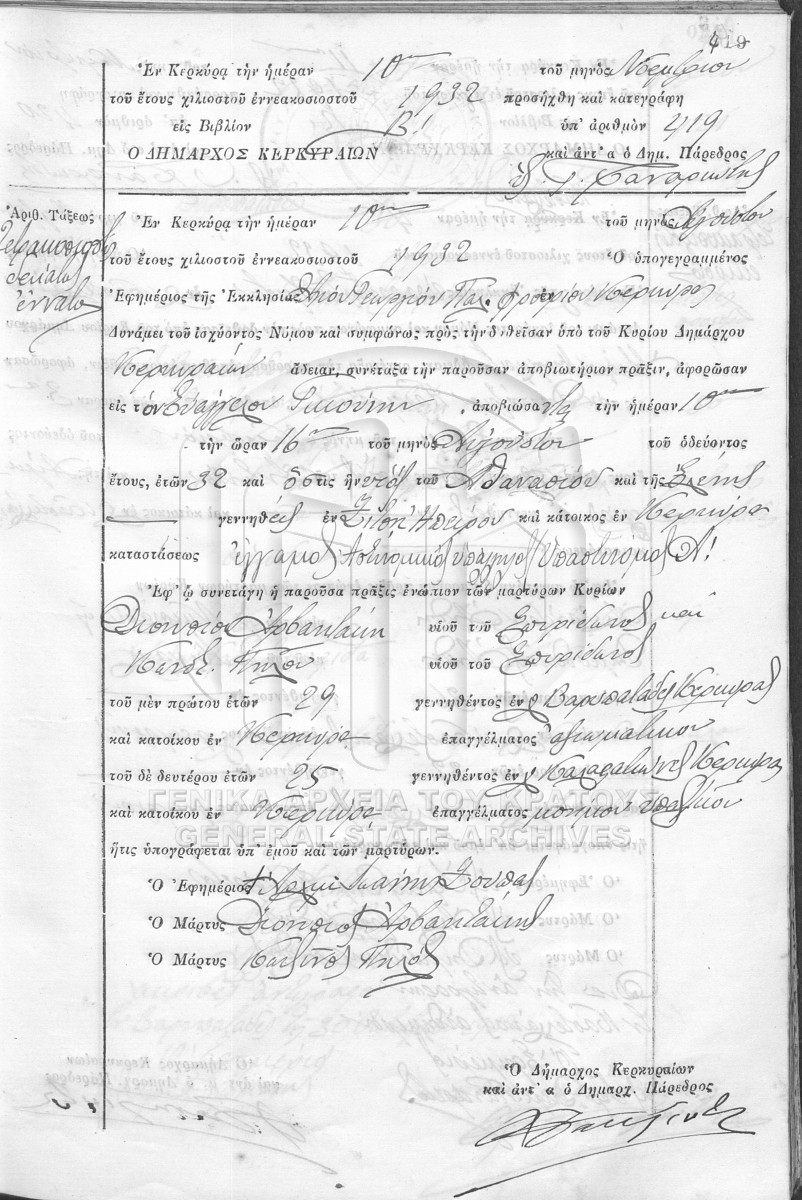 419
Ἐν Κερκύρᾳ τὴν ἡμέραν 10ην τοῦ μηνὸς Νοεμβρίου
τοῦ ἔτους χιλιοστοῦ ἐννεακοσιοστοῦ 1932 προσήχθη καὶ κατεγράφη
εἰς Βιβλίον Β! ὑπ' ἀριθμὸν 419
Ὁ ΔΗΜΑΡΧΟΣ ΚΕΡΚΥΡΑΙΩΝ καὶ ἀντ' α ὁ Δημ. Πάρεδρος
Ἀριθ. Τάξεως
δέκατος
ἔννατος
Ἐν Κερκύρᾳ τὴν ἡμέραν 10ην τοῦ μηνὸς Αὐγούστου
τοῦ ἔτους χιλιοστοῦ ἐννεακοσιοστοῦ 1932 Ὁ ὑπογεγραμμένος
Ἐφημέριος τῆς Ἐκκλησίας Ἁγίου Γεωργίου Παλ. Φρουρίου Κερκύρας
Δυνάμει τοῦ ἰσχύοντος Νόμου καὶ συμφώνως πρὸς τὴν δοθεῖσαν ὑπὸ τοῦ Κυρίου Δημάρχου
Κερκυραίων ἄδειαν, συνέταξα τὴν παροῦσαν ἀποβιωτήριον πρᾶξιν, ἀφορῶσαν
εἰς τὸν Εὐάγγελον ἀποβιώσαντα τὴν ἡμέραν 10ην
τὴν ὥραν 16ην τοῦ μηνὸς Αὐγούστου τοῦ ὁδεύοντος
ἔτους, ἐτῶν 32 καὶ ὅστις ἦν υἱὸς τοῦ Ἀθανασίου καὶ τῆς Ἑλένης
γεννηθεὶς ἐν Ἠπείρου καὶ κάτοικος ἐν Κερκύρᾳ
καταστάσεως ἔγγαμος Ἀστυνομικὸς ὑπάλληλος Ὑπαστυνόμος Α!
Ἐφ' ᾧ συνετάγη ἡ παροῦσα πρᾶξις ἐνώπιον τῶν μαρτύρων Κυρίων
Διονυσίου Ἀρβανιτάκη υἱοῦ τοῦ Σπυρίδωνος καὶ
Κωνστ. υἱοῦ τοῦ Σπυρίδωνος
τοῦ μὲν πρώτου ἐτῶν 29 γεννηθέντος ἐν Βαρυπατάδες Κερκύρας
καὶ κατοίκου ἐν Κερκύρᾳ ἐπαγγέλματος ἀξιωματικοῦ
τοῦ δὲ δευτέρου ἐτῶν 25 γεννηθέντος ἐν Κερκύρας
καὶ κατοίκου ἐν Κερκύρᾳ ἐπαγγέλματος
ΓΕΝΙΚΑ ΑΡΧΕΙΑ ΤΟΥ ΚΡΑΤΟΥΣ
GENERAL STATE ARCHIVES
ἥτις ὑπογράφεται ὑπ' ἐμοῦ καὶ τῶν μαρτύρων.
Ὁ Ἐφημέριος Ἰωάννης
Ὁ Μάρτυς Διονύσιος Ἀρβανιτάκης
Ὁ Μάρτυς
Ὁ Δήμαρχος Κερκυραίων
καὶ ἀντ' α ὁ Δημαρχ. Πάρεδρος